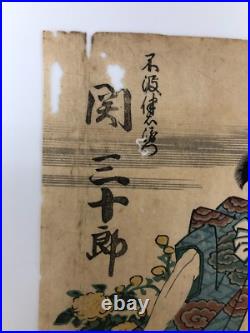 不破伴左衛門
関
三十郎